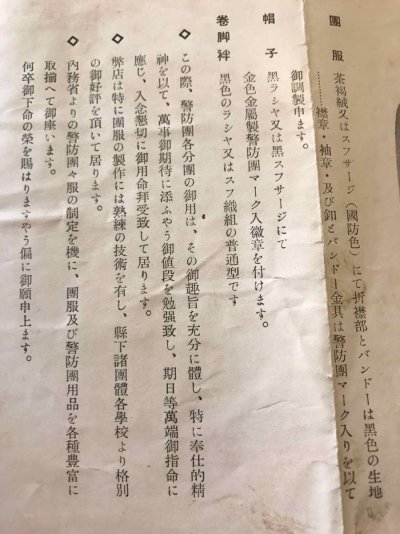 團服　茶褐絨又はスフサージ（國防色）にて折襟部とバンドーは黑色の生地
……襟章・袖章・及び釦とバンドー金具は警防團マーク入りを以て
御調製申ます。
帽子　黑ラシヤ又は黑スフサージにて
金色金屬製警防團マーク入徽章を付けます。
卷脚袢　黑色のラシヤ又はスフ織組の普通型です
◇　この際、警防團各分團の御用は、その御趣旨を充分に體し、特に奉仕的精
神を以て、萬事御期待に添ふやう御値段を勉强致し、期日等萬端御指命に
應じ、入念懇切に御用命拜受致して居ります。
◇　弊店は特に團服の製作には熟練の技術を有し、縣下諸團體各學校より格別
の御好評を頂いて居ります。
◇　內務省よりの警防團々服の制定を機に、團服及び警防團用品を各種豐富に
取揃へて御座います。
何卒御下命の榮を賜はりますやう偏に御願申上ます。